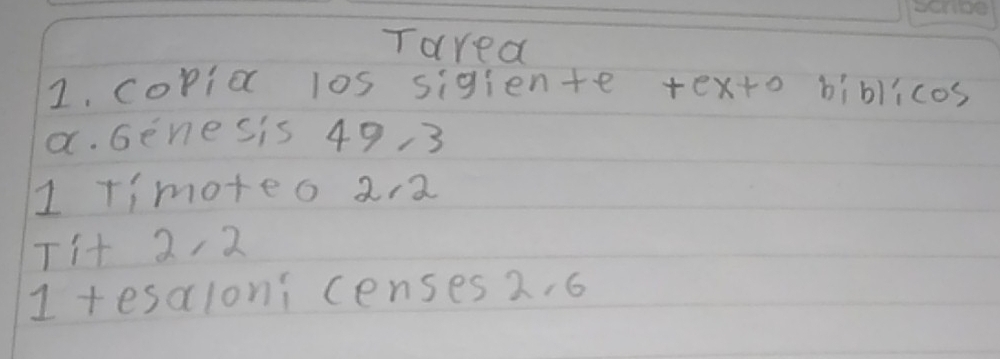 Scribe
Tarea
1. copia los sigiente texto biblicos
a. Génesis 49,3
1 Timoteo 2,2
Tít 2,2
1 tesaloni censes 2,6